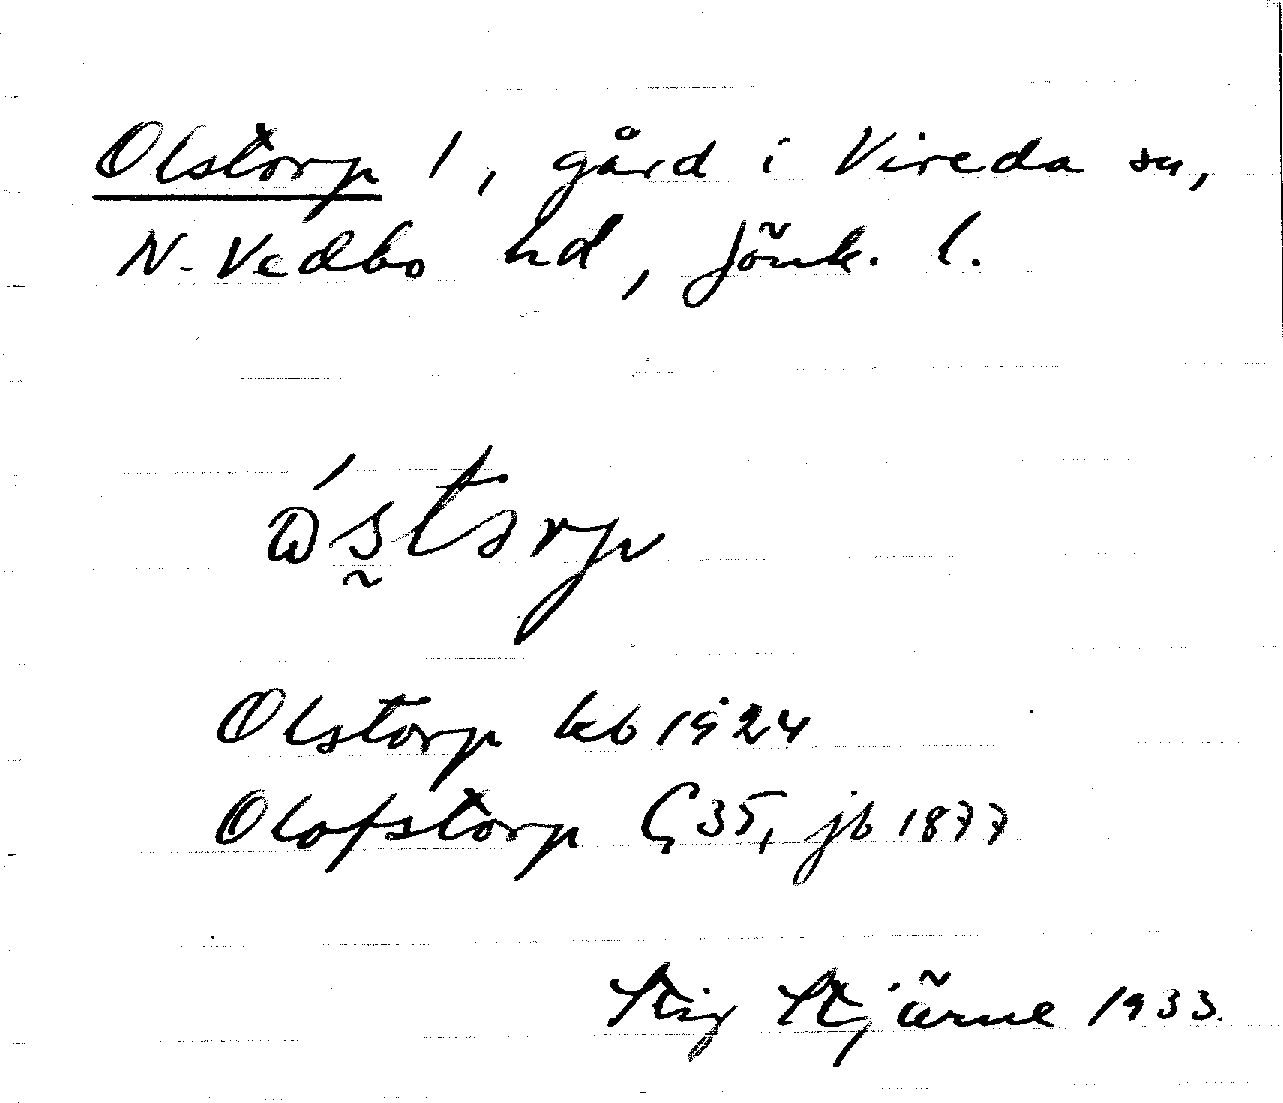 Olstorp 1, gård i Vireda sn,
N. Vedbo hd, Jönk. l.
Olstorp kb 1924
Olofstorp G 35, jb 1877
Stig Stjärne 1933.